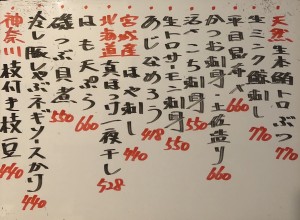 天然生本鮪トロぶつ 770
生ミンク鯨刺し 770
平目昆布〆 660
かつお刺身・土佐造り 660
活〆こち刺身 550
生トロサーモン刺身 550
あじなめろう 418
宮城産ほや刺し 440
北海道真ほっけ一夜干し 528
はも天ぷら 660
磯つぶ貝煮 550
冷し豚しゃぶネギソースかけ 440
神奈川枝付き枝豆 440